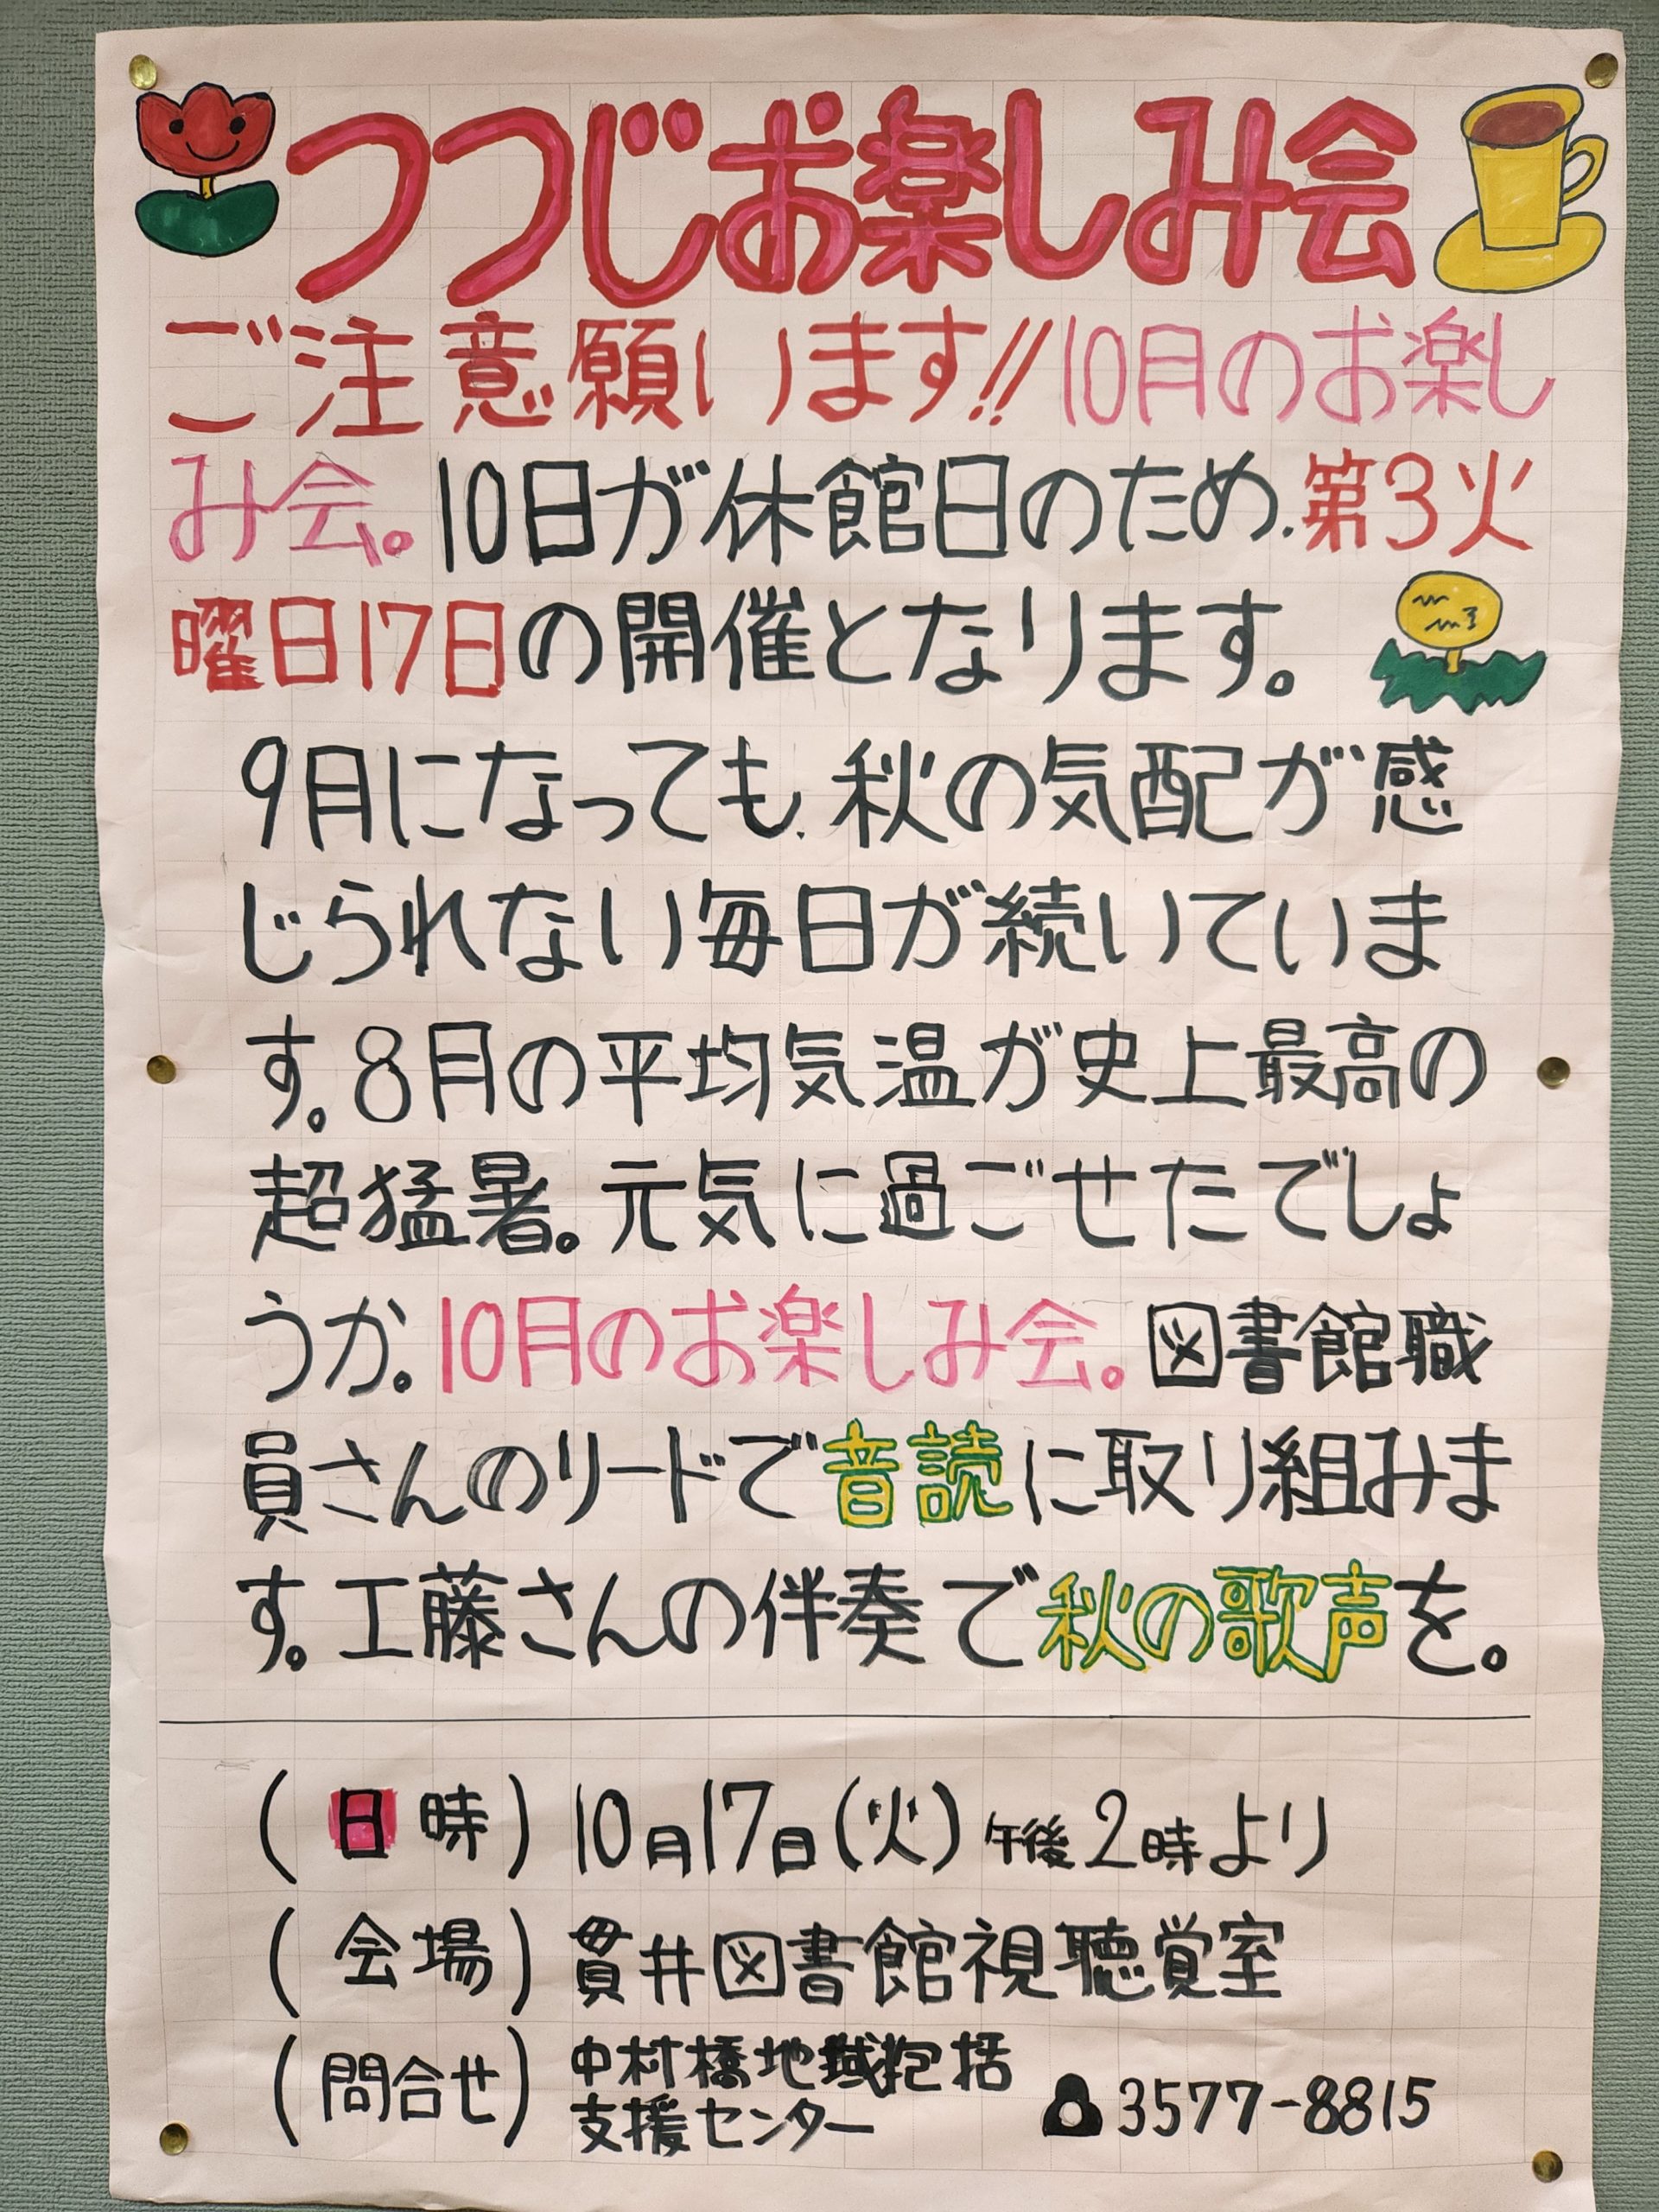 つつじお楽しみ会
ご注意願います!!10月のお楽し
み会。10日が休館日のため、第3火
曜日17日の開催となります。
9月になっても、秋の気配が感
じられない毎日が続いていま
す。8月の平均気温が史上最高の
超猛暑。元気に過ごせたでしょ
うか。10月のお楽しみ会。図書館職
員さんのリードで音読に取り組みま
す。工藤さんの伴奏で秋の歌声を。
(日時) 10月17日(火) 午後2時より
(会場) 貫井図書館視聴覚室
(問合せ) 中村橋地域包括
支援センター ☎3577-8815